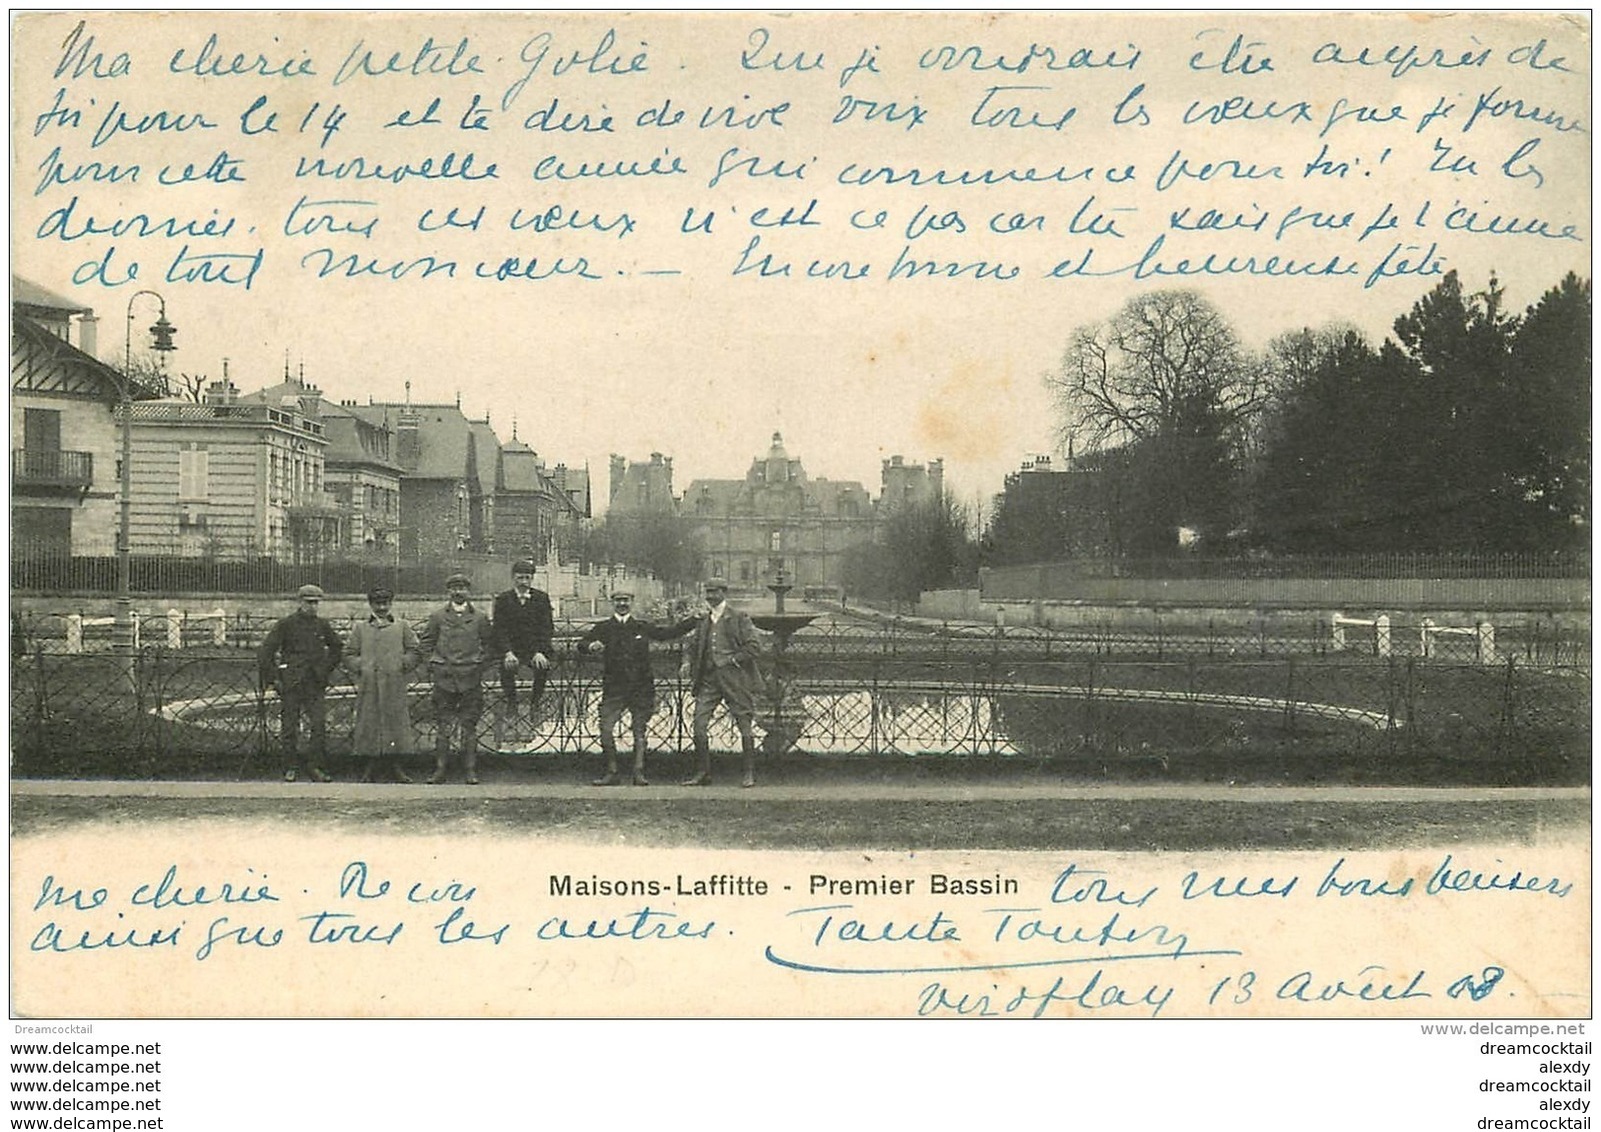 Ma cherie petite Golie. Que je voudrais être auprès de
toi pour le 14 et te dire de vive voix tous les vœux que je forme
pour cette nouvelle année qui commence pour toi! Tu les
devines. tous ces vœux n'est ce pas car tu sais que je t'aime
de tout mon cœur. — Encore bonne et heureuse fête
ma cherie. Recois tous mes bons baisers
ainsi que tous les autres. Tante
Maisons-Laffitte - Premier Bassin
Viroflay 13 Août 08.
Dreamcocktail
www.delcampe.net
www.delcampe.net
www.delcampe.net
www.delcampe.net
www.delcampe.net
www.delcampe.net
dreamcocktail
alexdy
dreamcocktail
alexdy
dreamcocktail